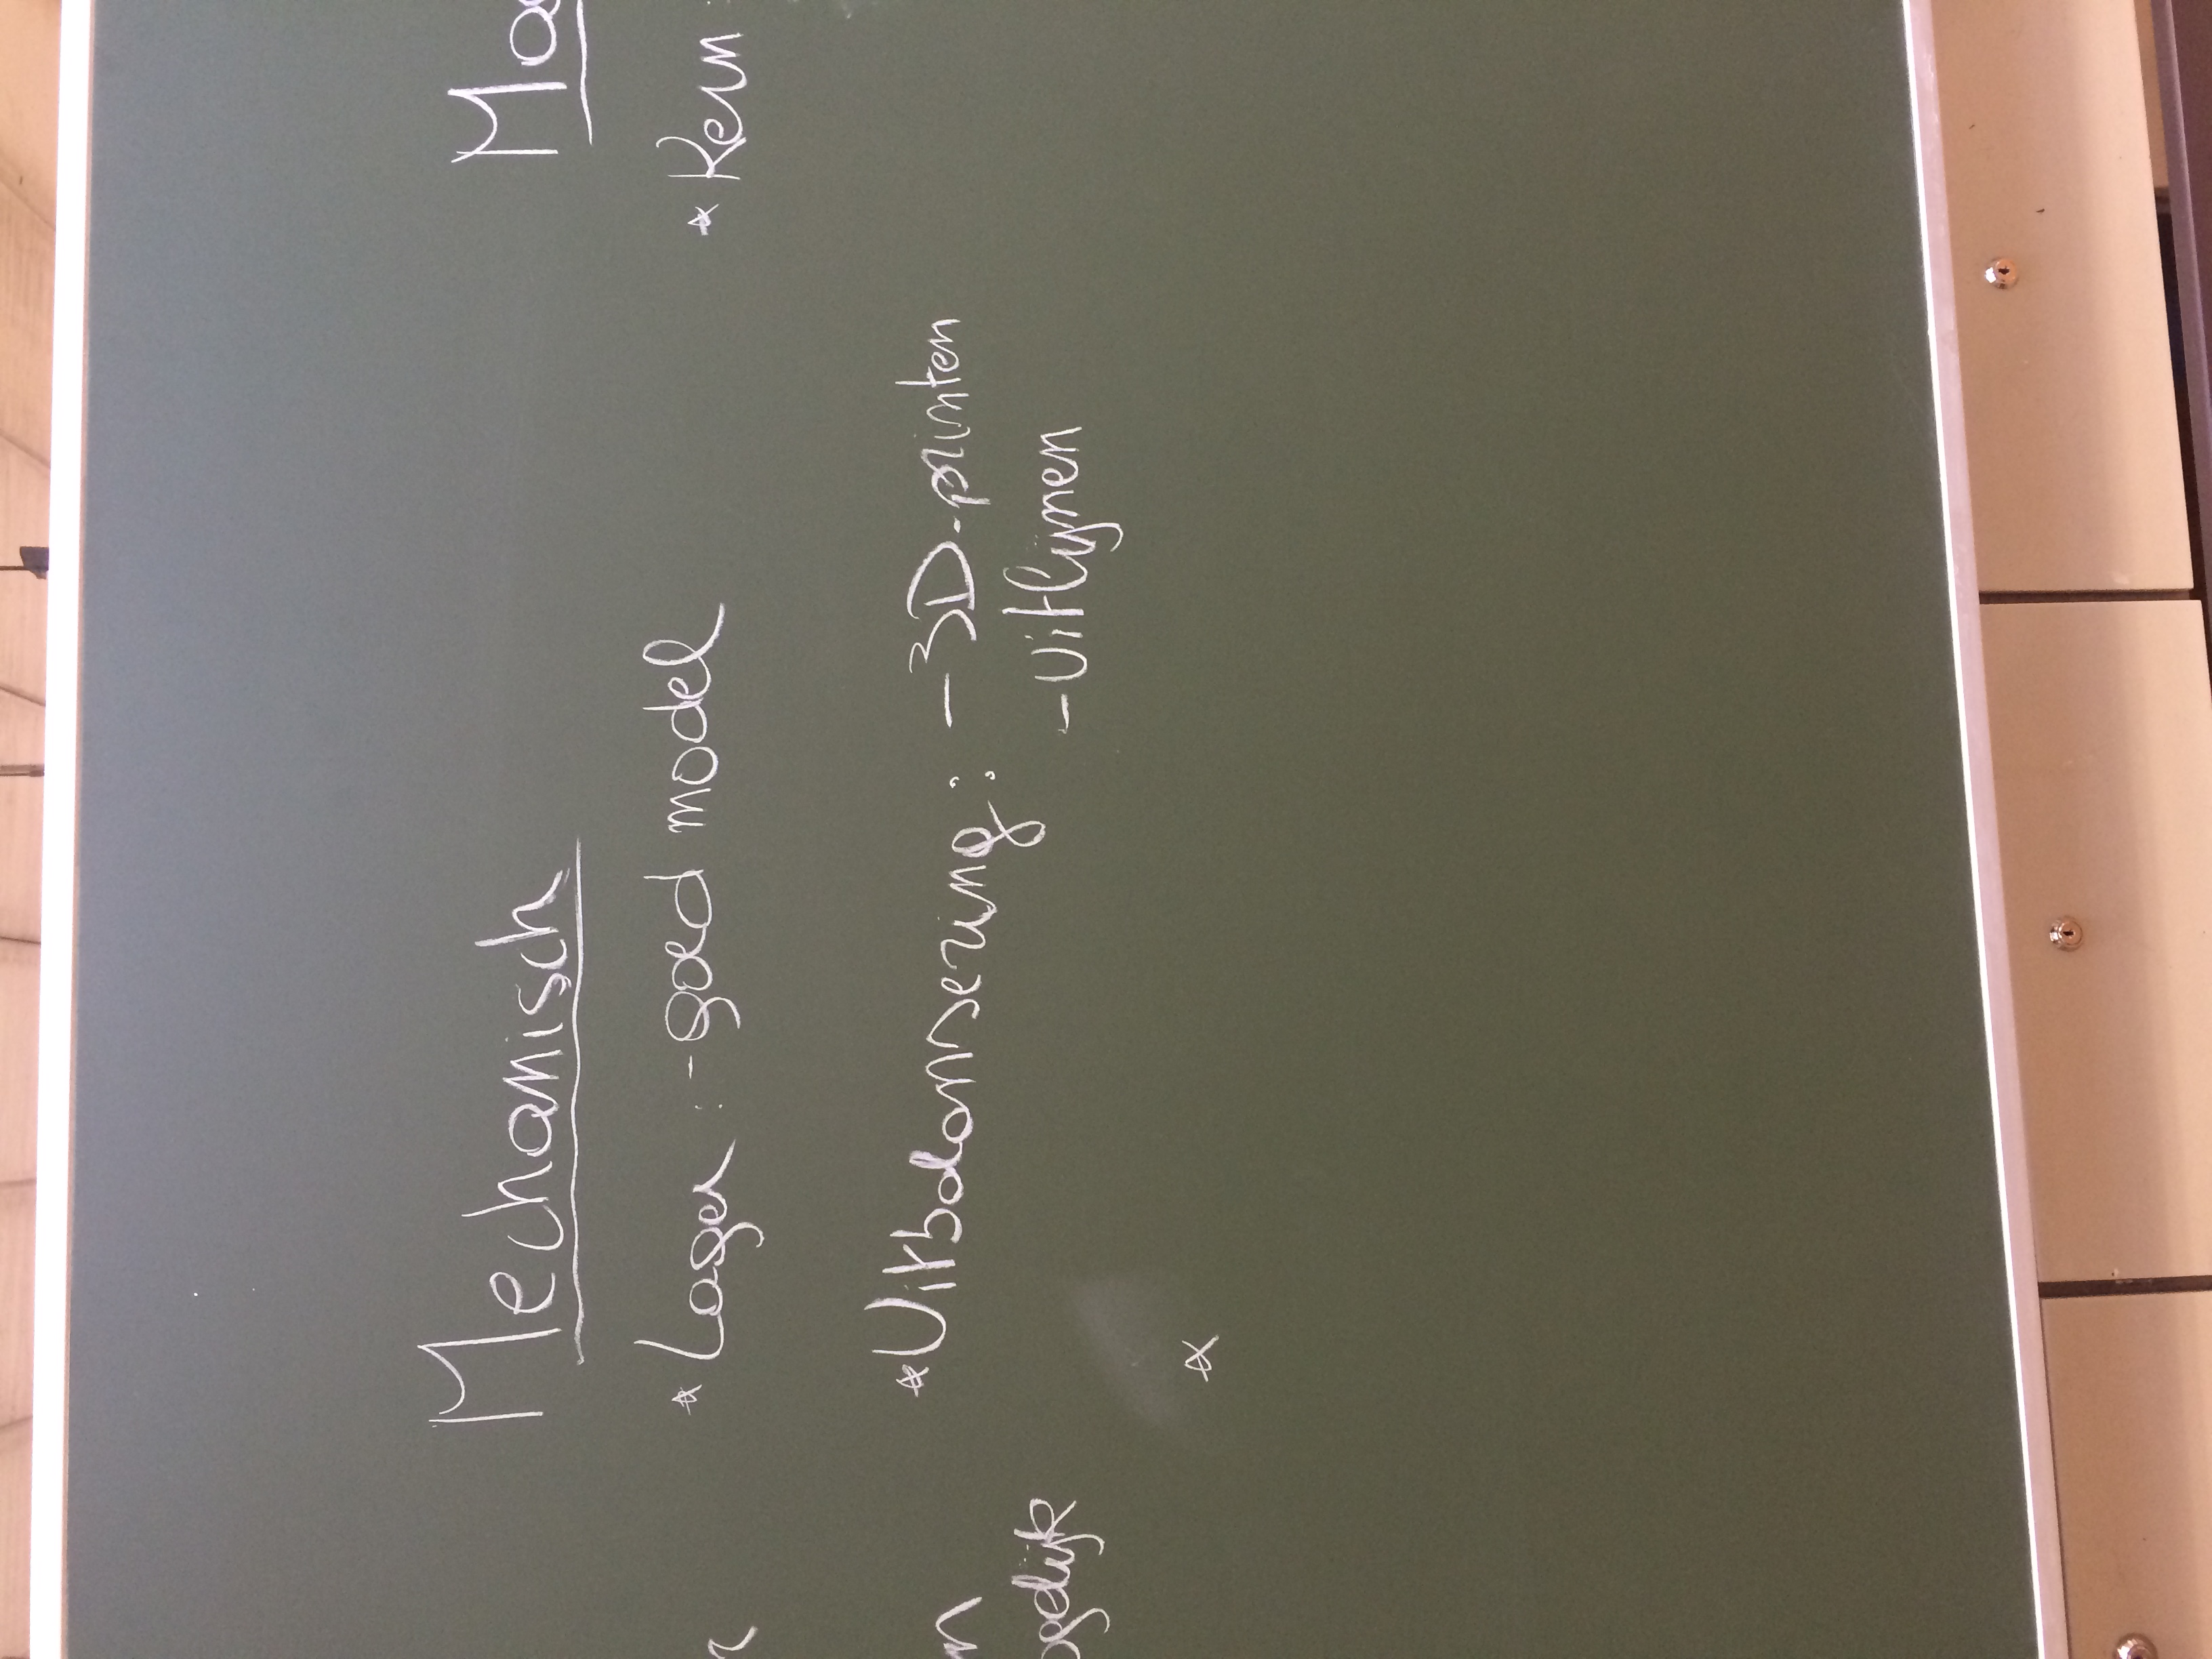 Mechanisch
* Lager : - goed model
* Uitbalansering : - 3D-printen
- Uitlijnen
*
* Kern :